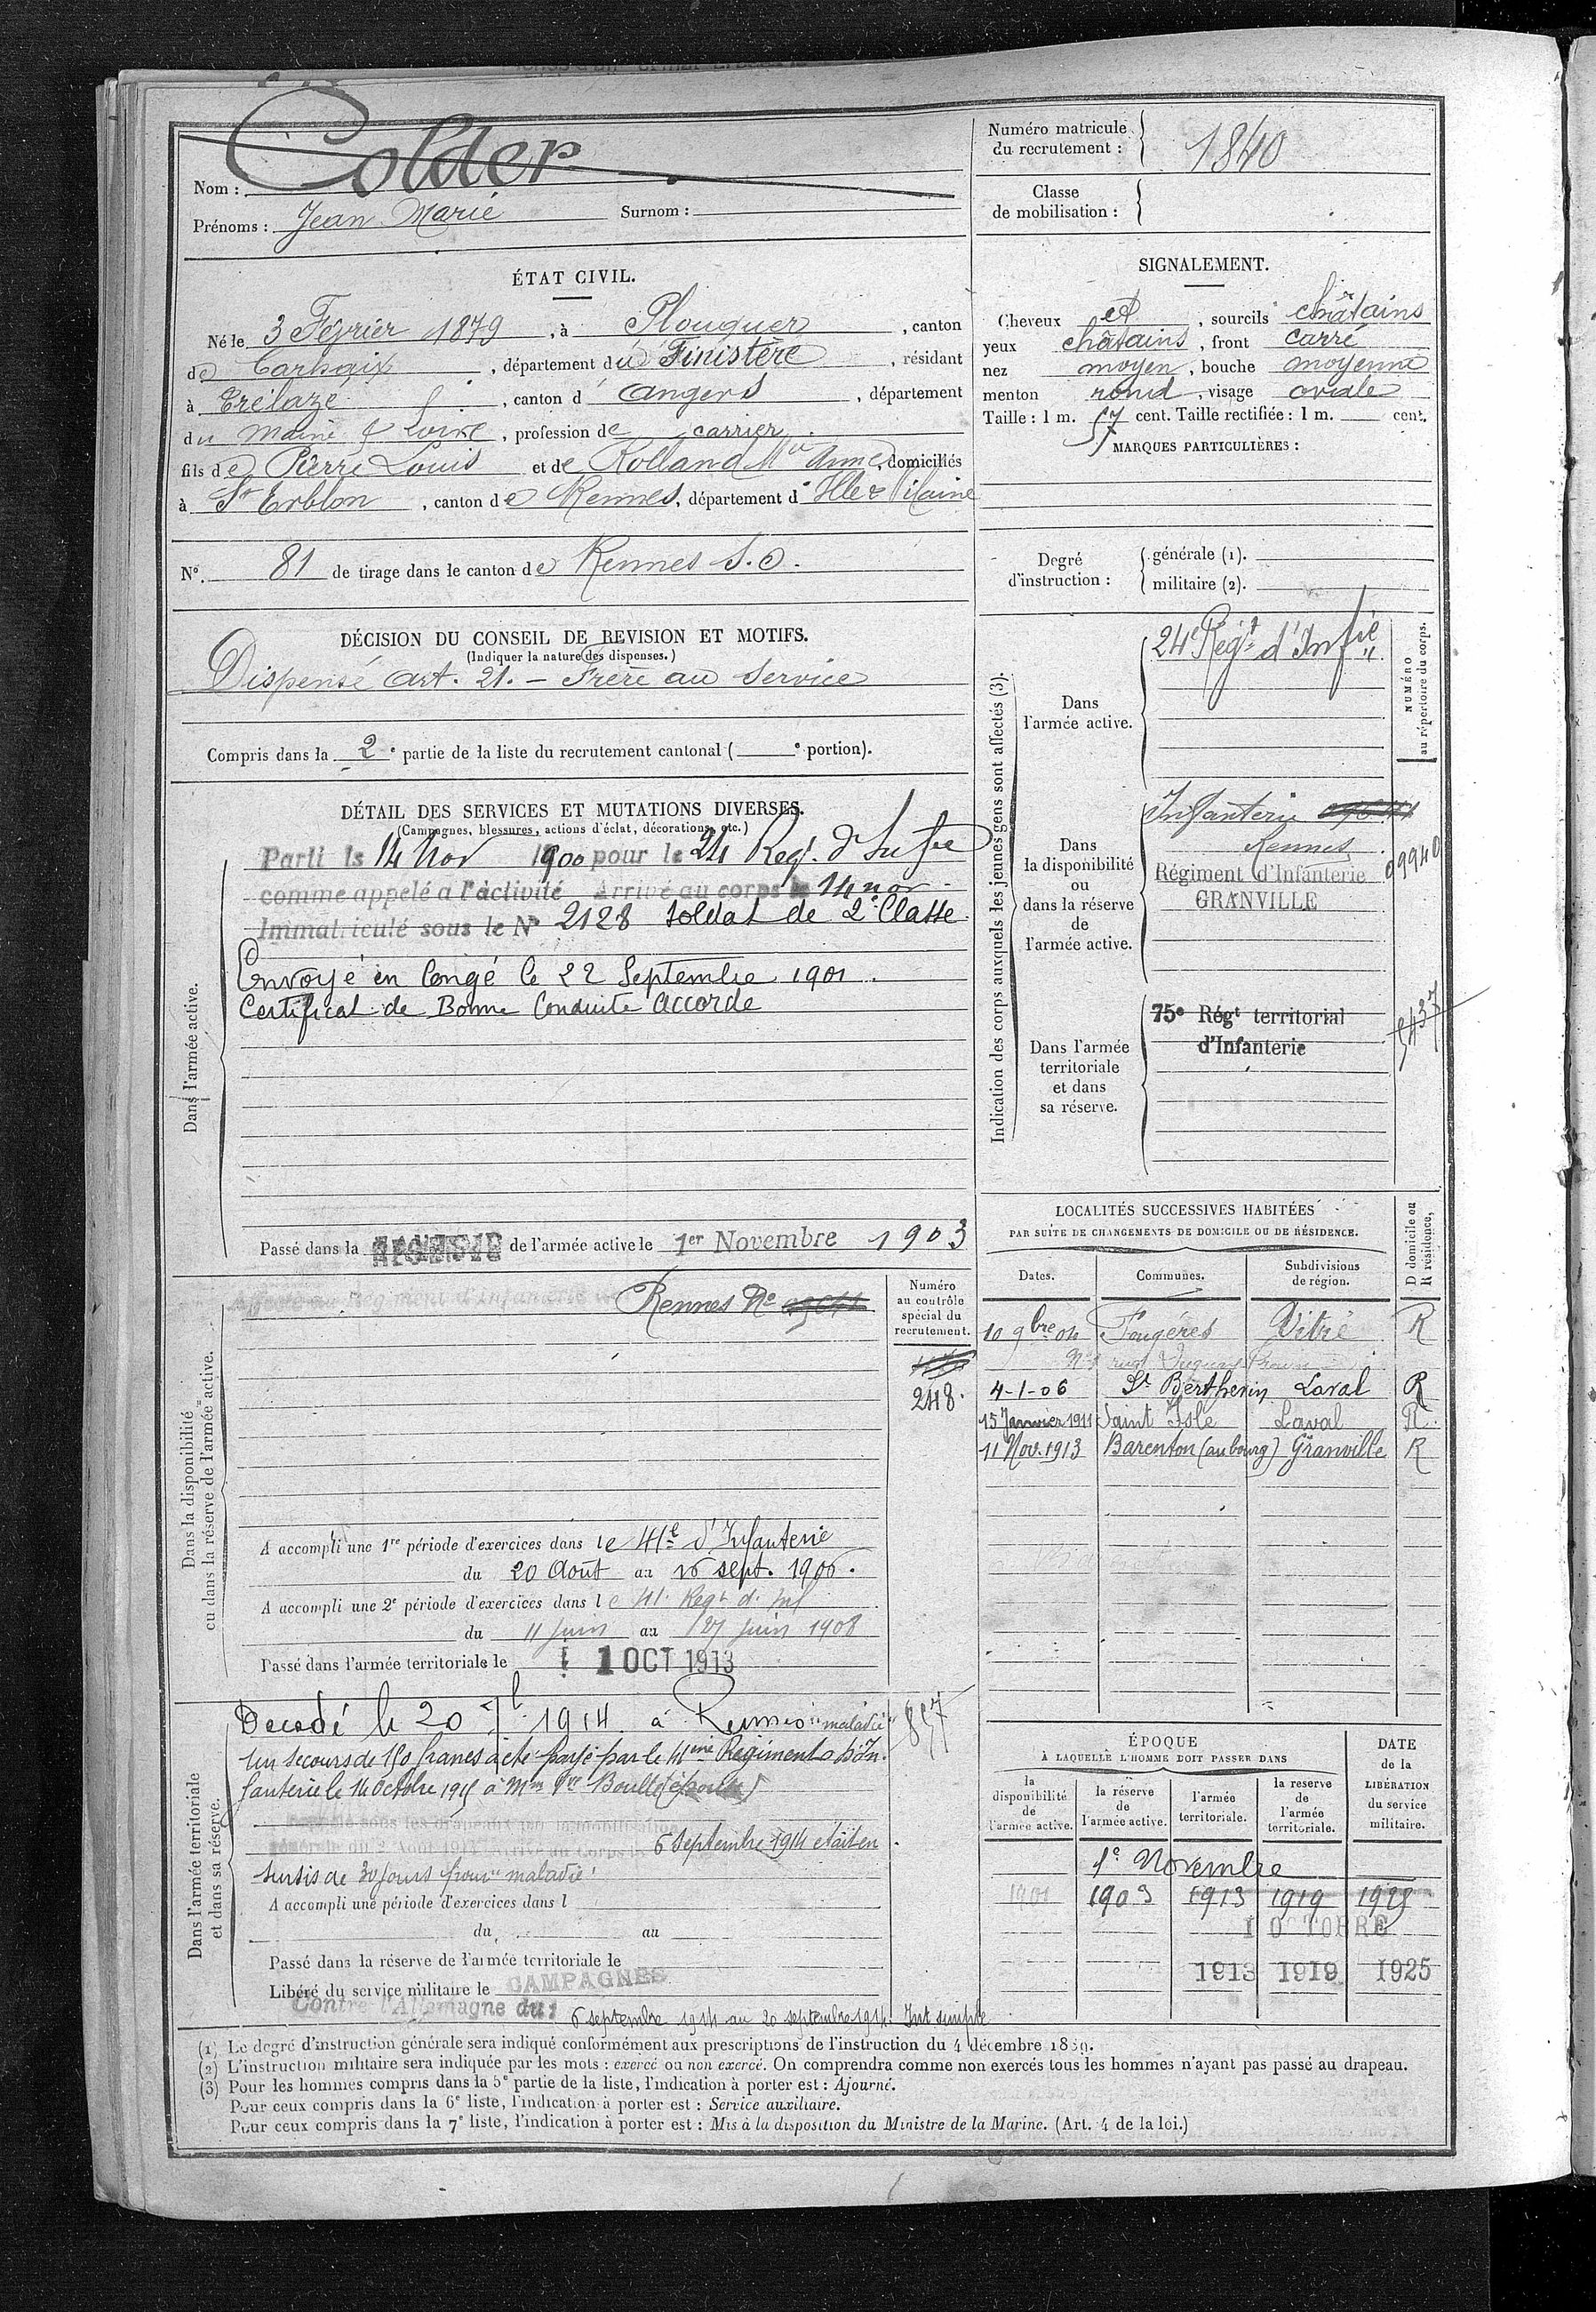 Colder
Nom :
Prénoms : Jean Marie Surnom :
Numéro matricule du recrutement : 1840
Classe de mobilisation :
ÉTAT CIVIL.
Né le 3 Février 1879, à Plouguer, canton
de Carhaix, département du Finistère, résidant
à Trélazé, canton d Angers, département
du Maine & Loire, profession de carrier
fils de Pierre Louis et de Rolland Mie Anne, domiciliés
à St Erblon, canton de Rennes, département d' Ille & Vilaine
N°. 81 de tirage dans le canton de Rennes S. O.
SIGNALEMENT.
Cheveux et, sourcils châtains
yeux châtains, front carré
nez moyen, bouche moyenne
menton rond, visage ovale
Taille : 1 m. 57 cent. Taille rectifiée : 1 m. cent.
MARQUES PARTICULIÈRES :
Degré d'instruction :
générale (1).
militaire (2).
DÉCISION DU CONSEIL DE REVISION ET MOTIFS.
(Indiquer la nature des dispenses.)
Dispensé art. 21. – Frère au Service
Compris dans la 2e partie de la liste du recrutement cantonal ( e portion).
DÉTAIL DES SERVICES ET MUTATIONS DIVERSES.
(Campagnes, blessures, actions d'éclat, décorations, etc.)
Dans l'armée active.
Parti le 14 Nov 1900 pour le 24 Regt. d'Infie
comme appelé à l'activité Arrivé au corps le 14 nov
Immatriculé sous le N° 2128 soldat de 2e Classe
Envoyé en Congé le 22 Septembre 1901.
Certificat de Bonne Conduite Accordé
Passé dans la RÉSERVE de l'armée active le 1er Novembre 1903
Indication des corps auxquels les jeunes gens sont affectés (3).
NUMÉRO au répertoire du corps.
Dans l'armée active.
24e Régt d'Infie
Dans la disponibilité ou dans la réserve de l'armée active.
Infanterie
Rennes
Régiment d'Infanterie
GRANVILLE
09940
Dans l'armée territoriale et dans sa réserve.
75e Régt territorial
d'Infanterie
5437
Dans la disponibilité ou dans la réserve de l'armée active.
Affecté au Régiment d'Infanterie de Rennes No
Numéro au contrôle spécial du recrutement.
248.
A accompli une 1re période d'exercices dans le 41e d'Infanterie
du 20 Août au 16 sept. 1906.
A accompli une 2e période d'exercices dans le 41. Regt d. Inf
du 11 juin au 27 juin 1908
Passé dans l'armée territoriale le 1 OCT 1913
LOCALITÉS SUCCESSIVES HABITÉES
PAR SUITE DE CHANGEMENTS DE DOMICILE OU DE RÉSIDENCE.
Dates. Communes. Subdivisions de région. D domicile ou R résidence.
10 9bre 04 Fougères Vitré R
4-1-06 St Berthevin Laval R
15 Janvier 1911 Saint Isle Laval R
11 Nov. 1913 Barenton (au bourg) Granville R
Dans l'armée territoriale et dans sa réserve.
Décédé le 20 7b 1914 à Rennes "maladie"
857
Un secours de 150 francs a été payé par le 41ème Régiment d'In-
fanterie le 14 Octobre 1915 à Mme Vve
Rappelé sous les drapeaux par la mobilisation
générale du 2 Août 1914 Arrivé au Corps le 6 Septembre 1914 était en
sursis de 30 jours pour "maladie"
A accompli une période d'exercices dans l
du au
Passé dans la réserve de l'armée territoriale le
Libéré du service militaire le
CAMPAGNES
Contre l'Allemagne du 6 septembre 1914 au 20 septembre 1914. Int simple
ÉPOQUE
À LAQUELLE L'HOMME DOIT PASSER DANS
DATE de la LIBÉRATION du service militaire.
la disponibilité de l'armée active.
la réserve de l'armée active.
l'armée territoriale.
la réserve de l'armée territoriale.
1er Novembre
1901 1903 1913 1919 1925
1 OCTOBRE
1913 1919 1925
(1) Le degré d'instruction générale sera indiqué conformément aux prescriptions de l'instruction du 4 décembre 1889.
(2) L'instruction militaire sera indiquée par les mots : exercé ou non exercé. On comprendra comme non exercés tous les hommes n'ayant pas passé au drapeau.
(3) Pour les hommes compris dans la 5e partie de la liste, l'indication à porter est : Ajourné.
Pour ceux compris dans la 6e liste, l'indication à porter est : Service auxiliaire.
Pour ceux compris dans la 7e liste, l'indication à porter est : Mis à la disposition du Ministre de la Marine. (Art. 4 de la loi.)